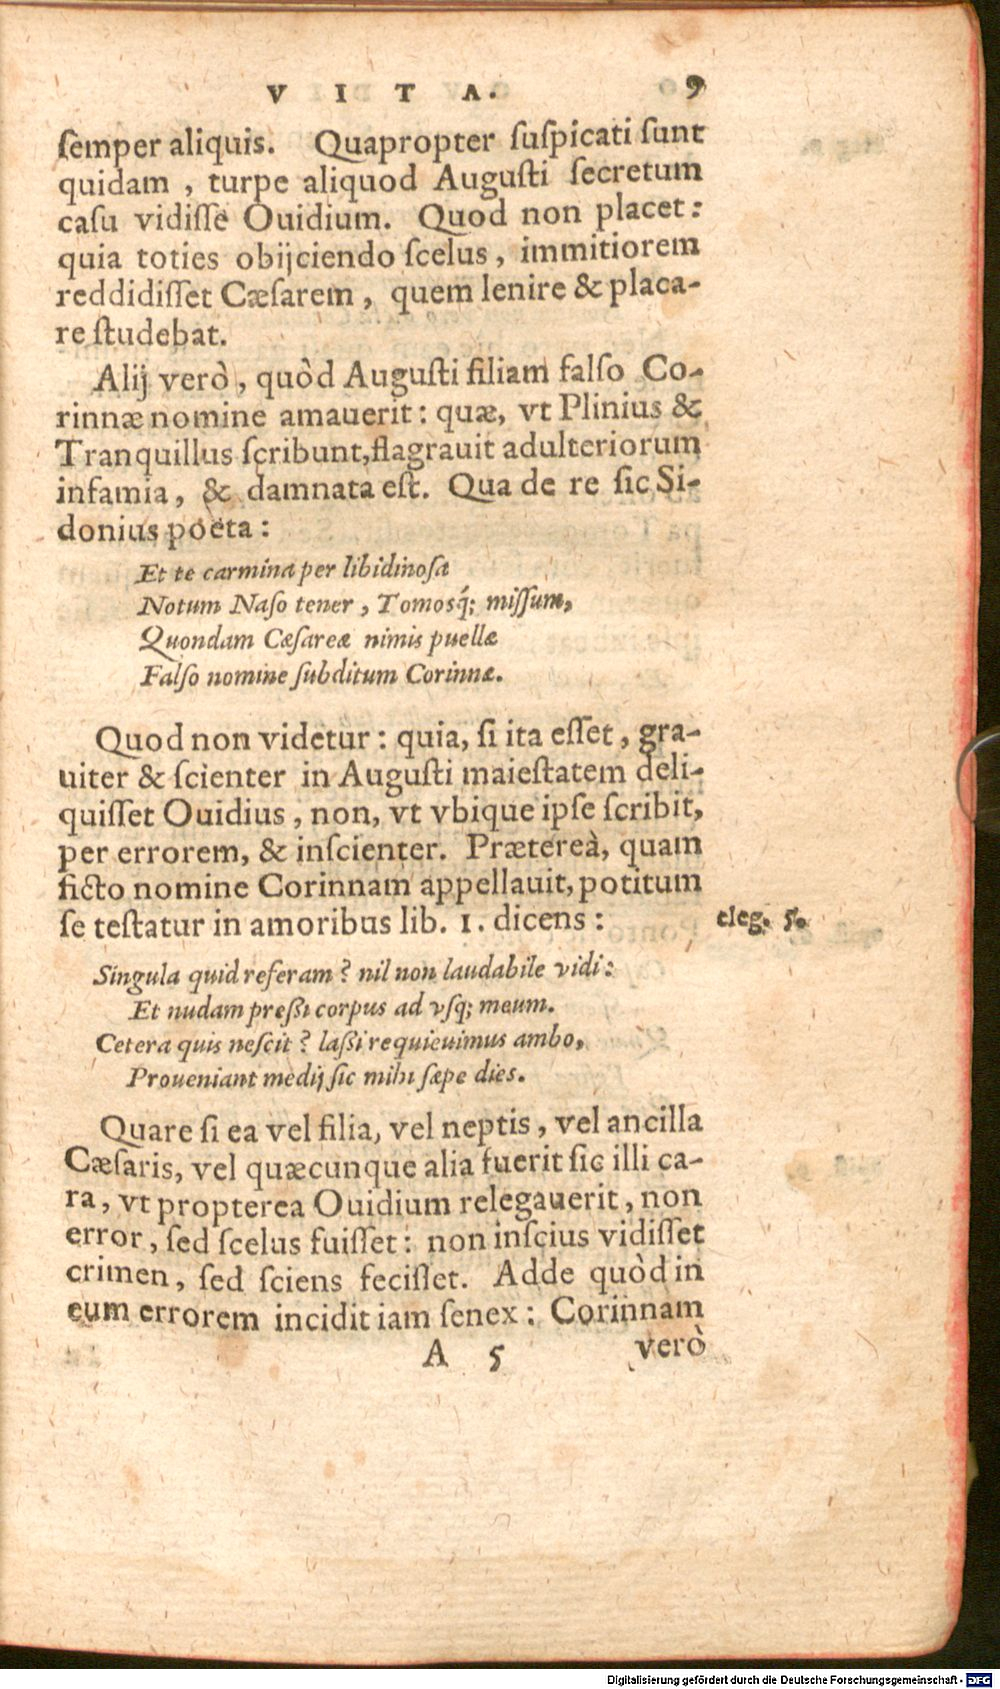 VITA. 9
ſemper aliquis. Quapropter ſuſpicati ſunt
quidam, turpe aliquod Auguſti ſecretum
caſu vidiſſe Ouidium. Quod non placet:
quia toties obijciendo ſcelus, immitiorem
reddidiſſet Cæſarem, quem lenire & placa-
re ſtudebat.
Alij verò, quòd Auguſti filiam falſo Co-
rinnæ nomine amauerit: quæ, vt Plinius &
Tranquillus ſcribunt, flagrauit adulteriorum
infamia, & damnata eſt. Qua de re ſic Si-
donius poëta:
Et te carmina per libidinoſa
Notum Naſo tener, Tomosq́; miſſum,
Quondam Cæſareæ nimis puellæ
Falſo nomine ſubditum Corinnæ.
Quod non videtur: quia, ſi ita eſſet, gra-
uiter & ſcienter in Auguſti maieſtatem deli-
quiſſet Ouidius, non, vt vbique ipſe ſcribit,
per errorem, & inſcienter. Prætereà, quam
ficto nomine Corinnam appellauit, potitum
ſe teſtatur in amoribus lib. 1. dicens: eleg. 5.
Singula quid referam? nil non laudabile vidi:
Et nudam preßi corpus ad vſq; meum.
Cetera quis neſcit? laßi requieuimus ambo,
Proueniant medij ſic mihi ſæpe dies.
Quare ſi ea vel filia, vel neptis, vel ancilla
Cæſaris, vel quæcunque alia fuerit ſic illi ca-
ra, vt propterea Ouidium relegauerit, non
error, ſed ſcelus fuiſſet: non inſcius vidiſſet
crimen, ſed ſciens feciſſet. Adde quòd in
eum errorem incidit iam ſenex: Corinnam
A 5 verò
Digitalisierung gefördert durch die Deutsche Forschungsgemeinschaft - DFG